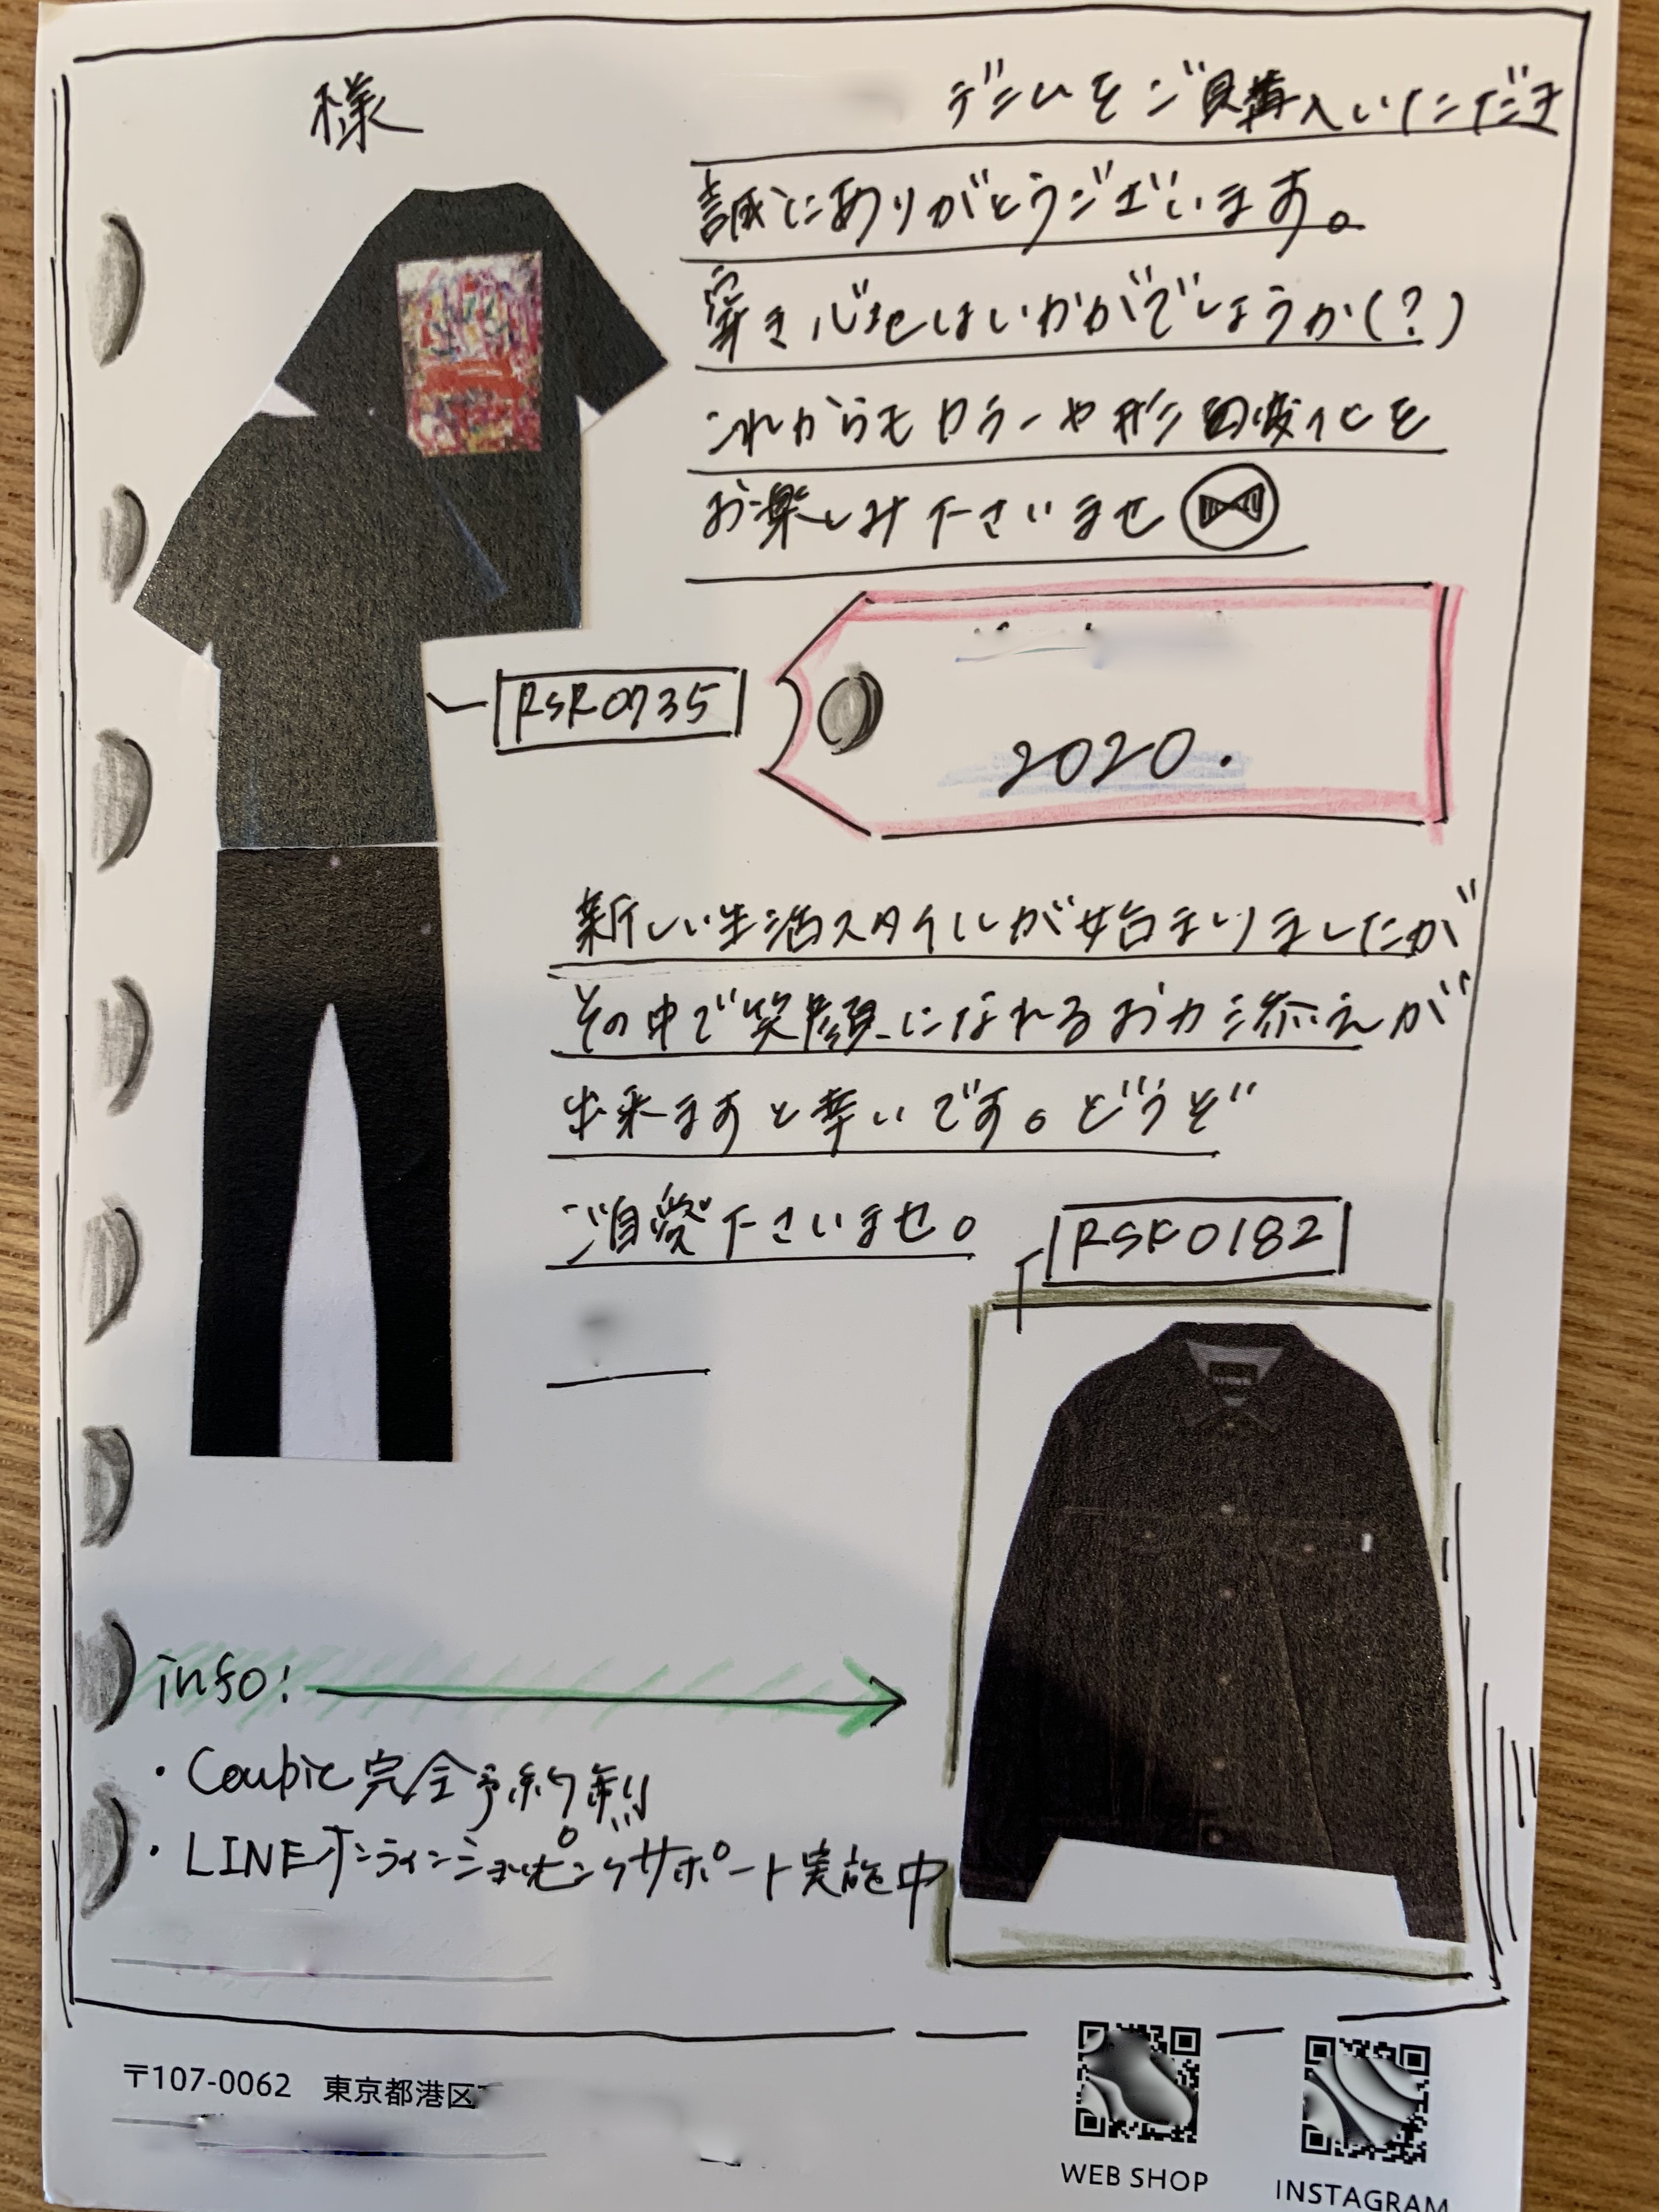 様
デニムをご購入いただき
誠にありがとうございます。
穿き心地はいかがでしょうか(?)
これからもカラーや形の変化を
お楽しみ下さいませ
RSR0735
2020.
新しい生活スタイルが始まりましたが
その中で笑顔になれるお力添えが
出来ますと幸いです。どうぞ
ご自愛下さいませ。
RSR0182
info:
・Coubic完全予約制
・LINEオンラインショッピングサポート実施中
〒107-0062 東京都港区
WEB SHOP
INSTAGRAM